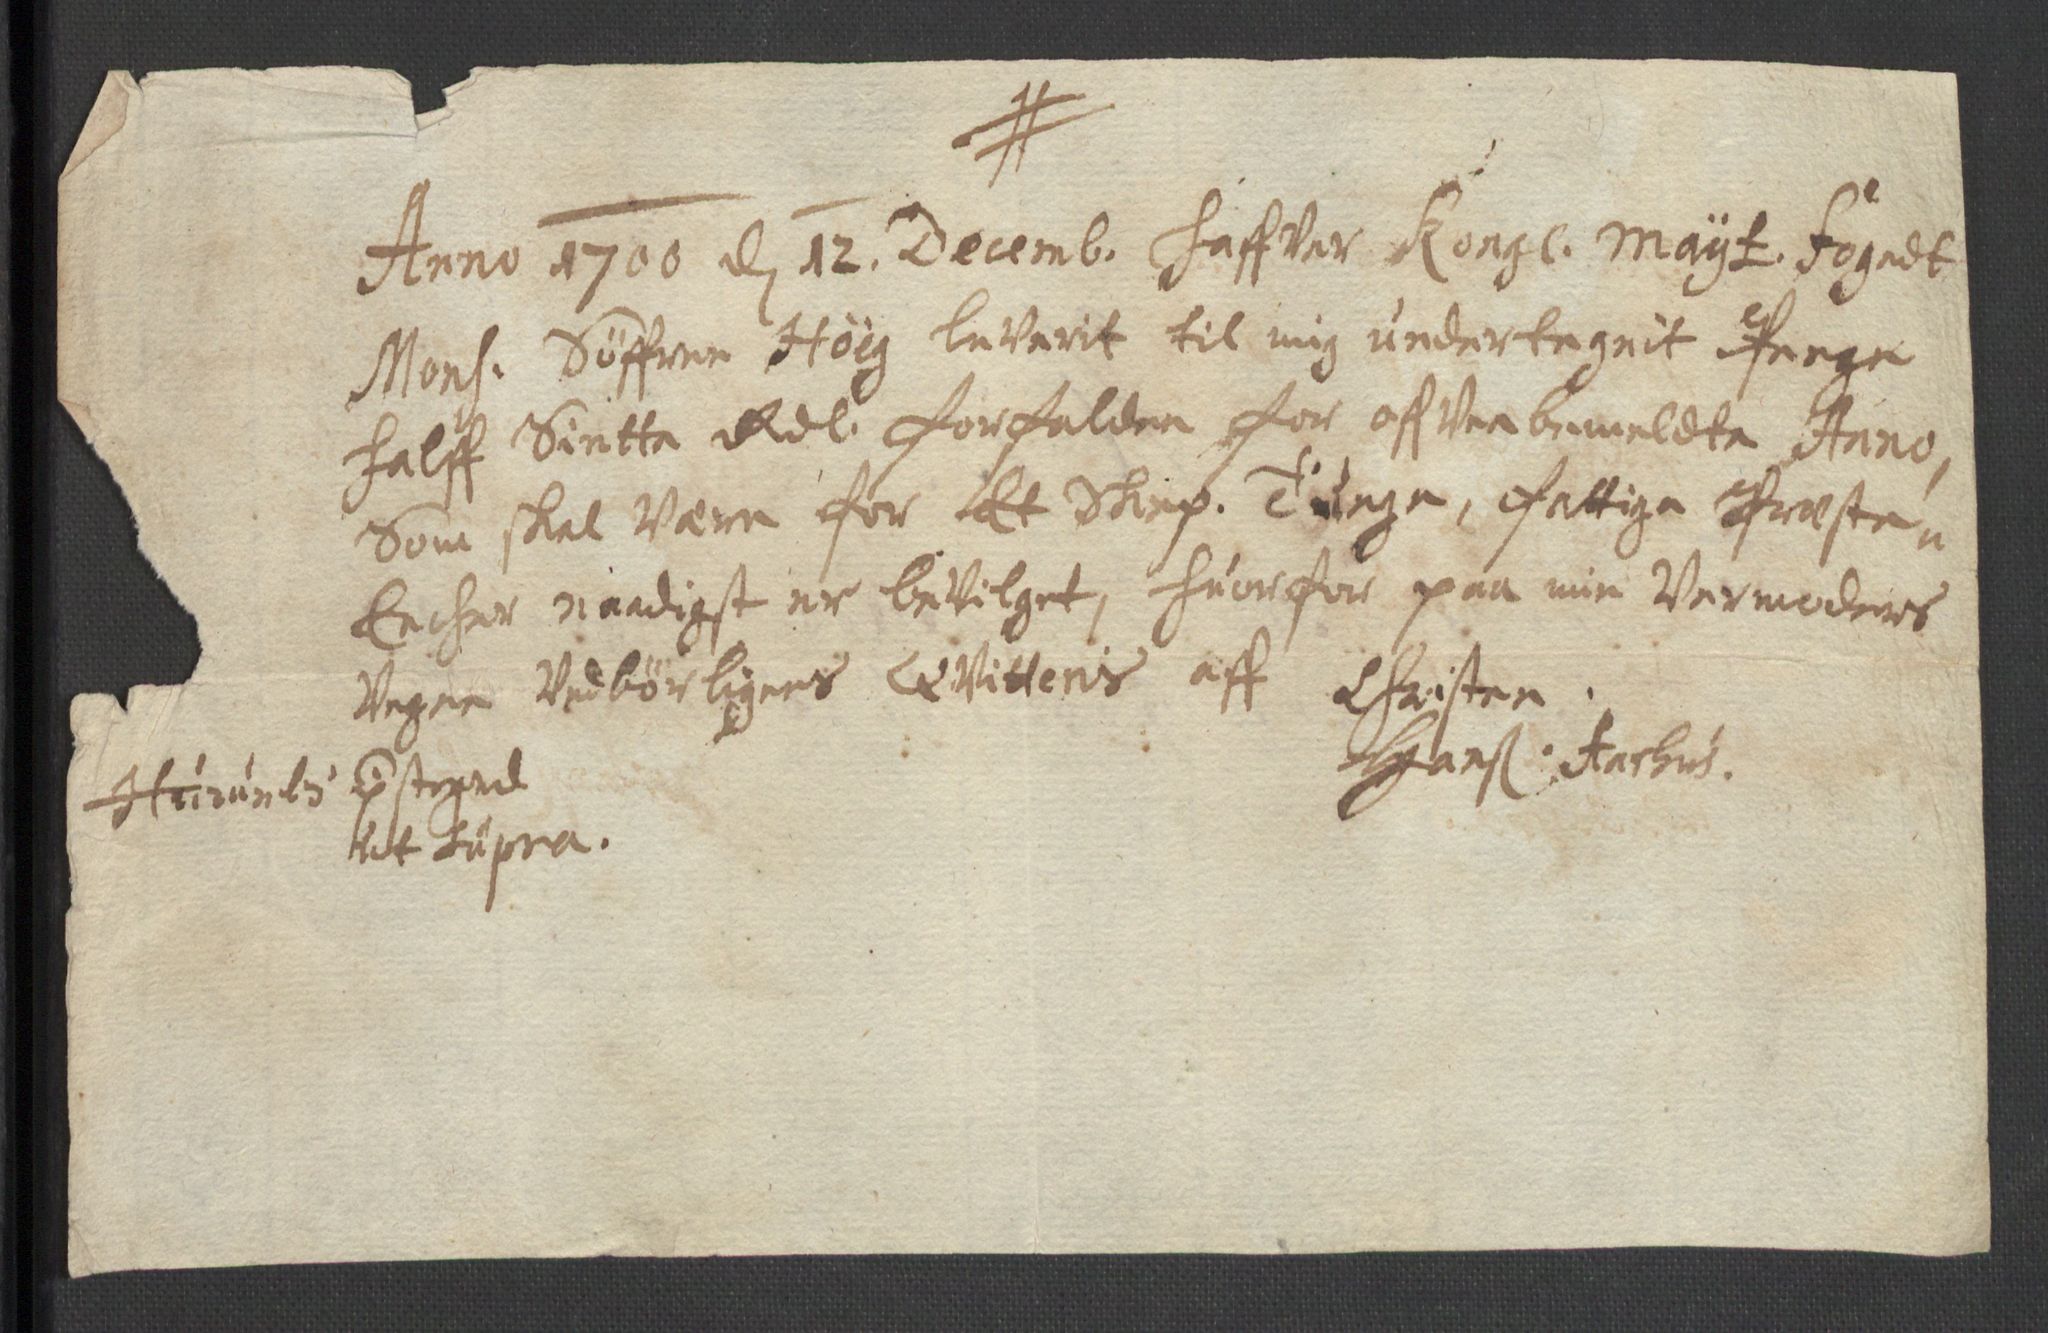 Anno 1700 d 12. Decemb. haffver Kongl. Mayt. fogedt
Mons. Söffren Höeg leverit til mig undertegnit Penge
halff Siette Rdl. forfalden for offvenbemeldte Anno,
Som skal Være for Et Skep. Tiunge, fattige Præste
Encher naadigst er beVilget, huorfor paa min Vermoders
Vegne Vedbörligens QVitteris aff Christen
Hanß. Aarhus.
Östegrd
ut supra.